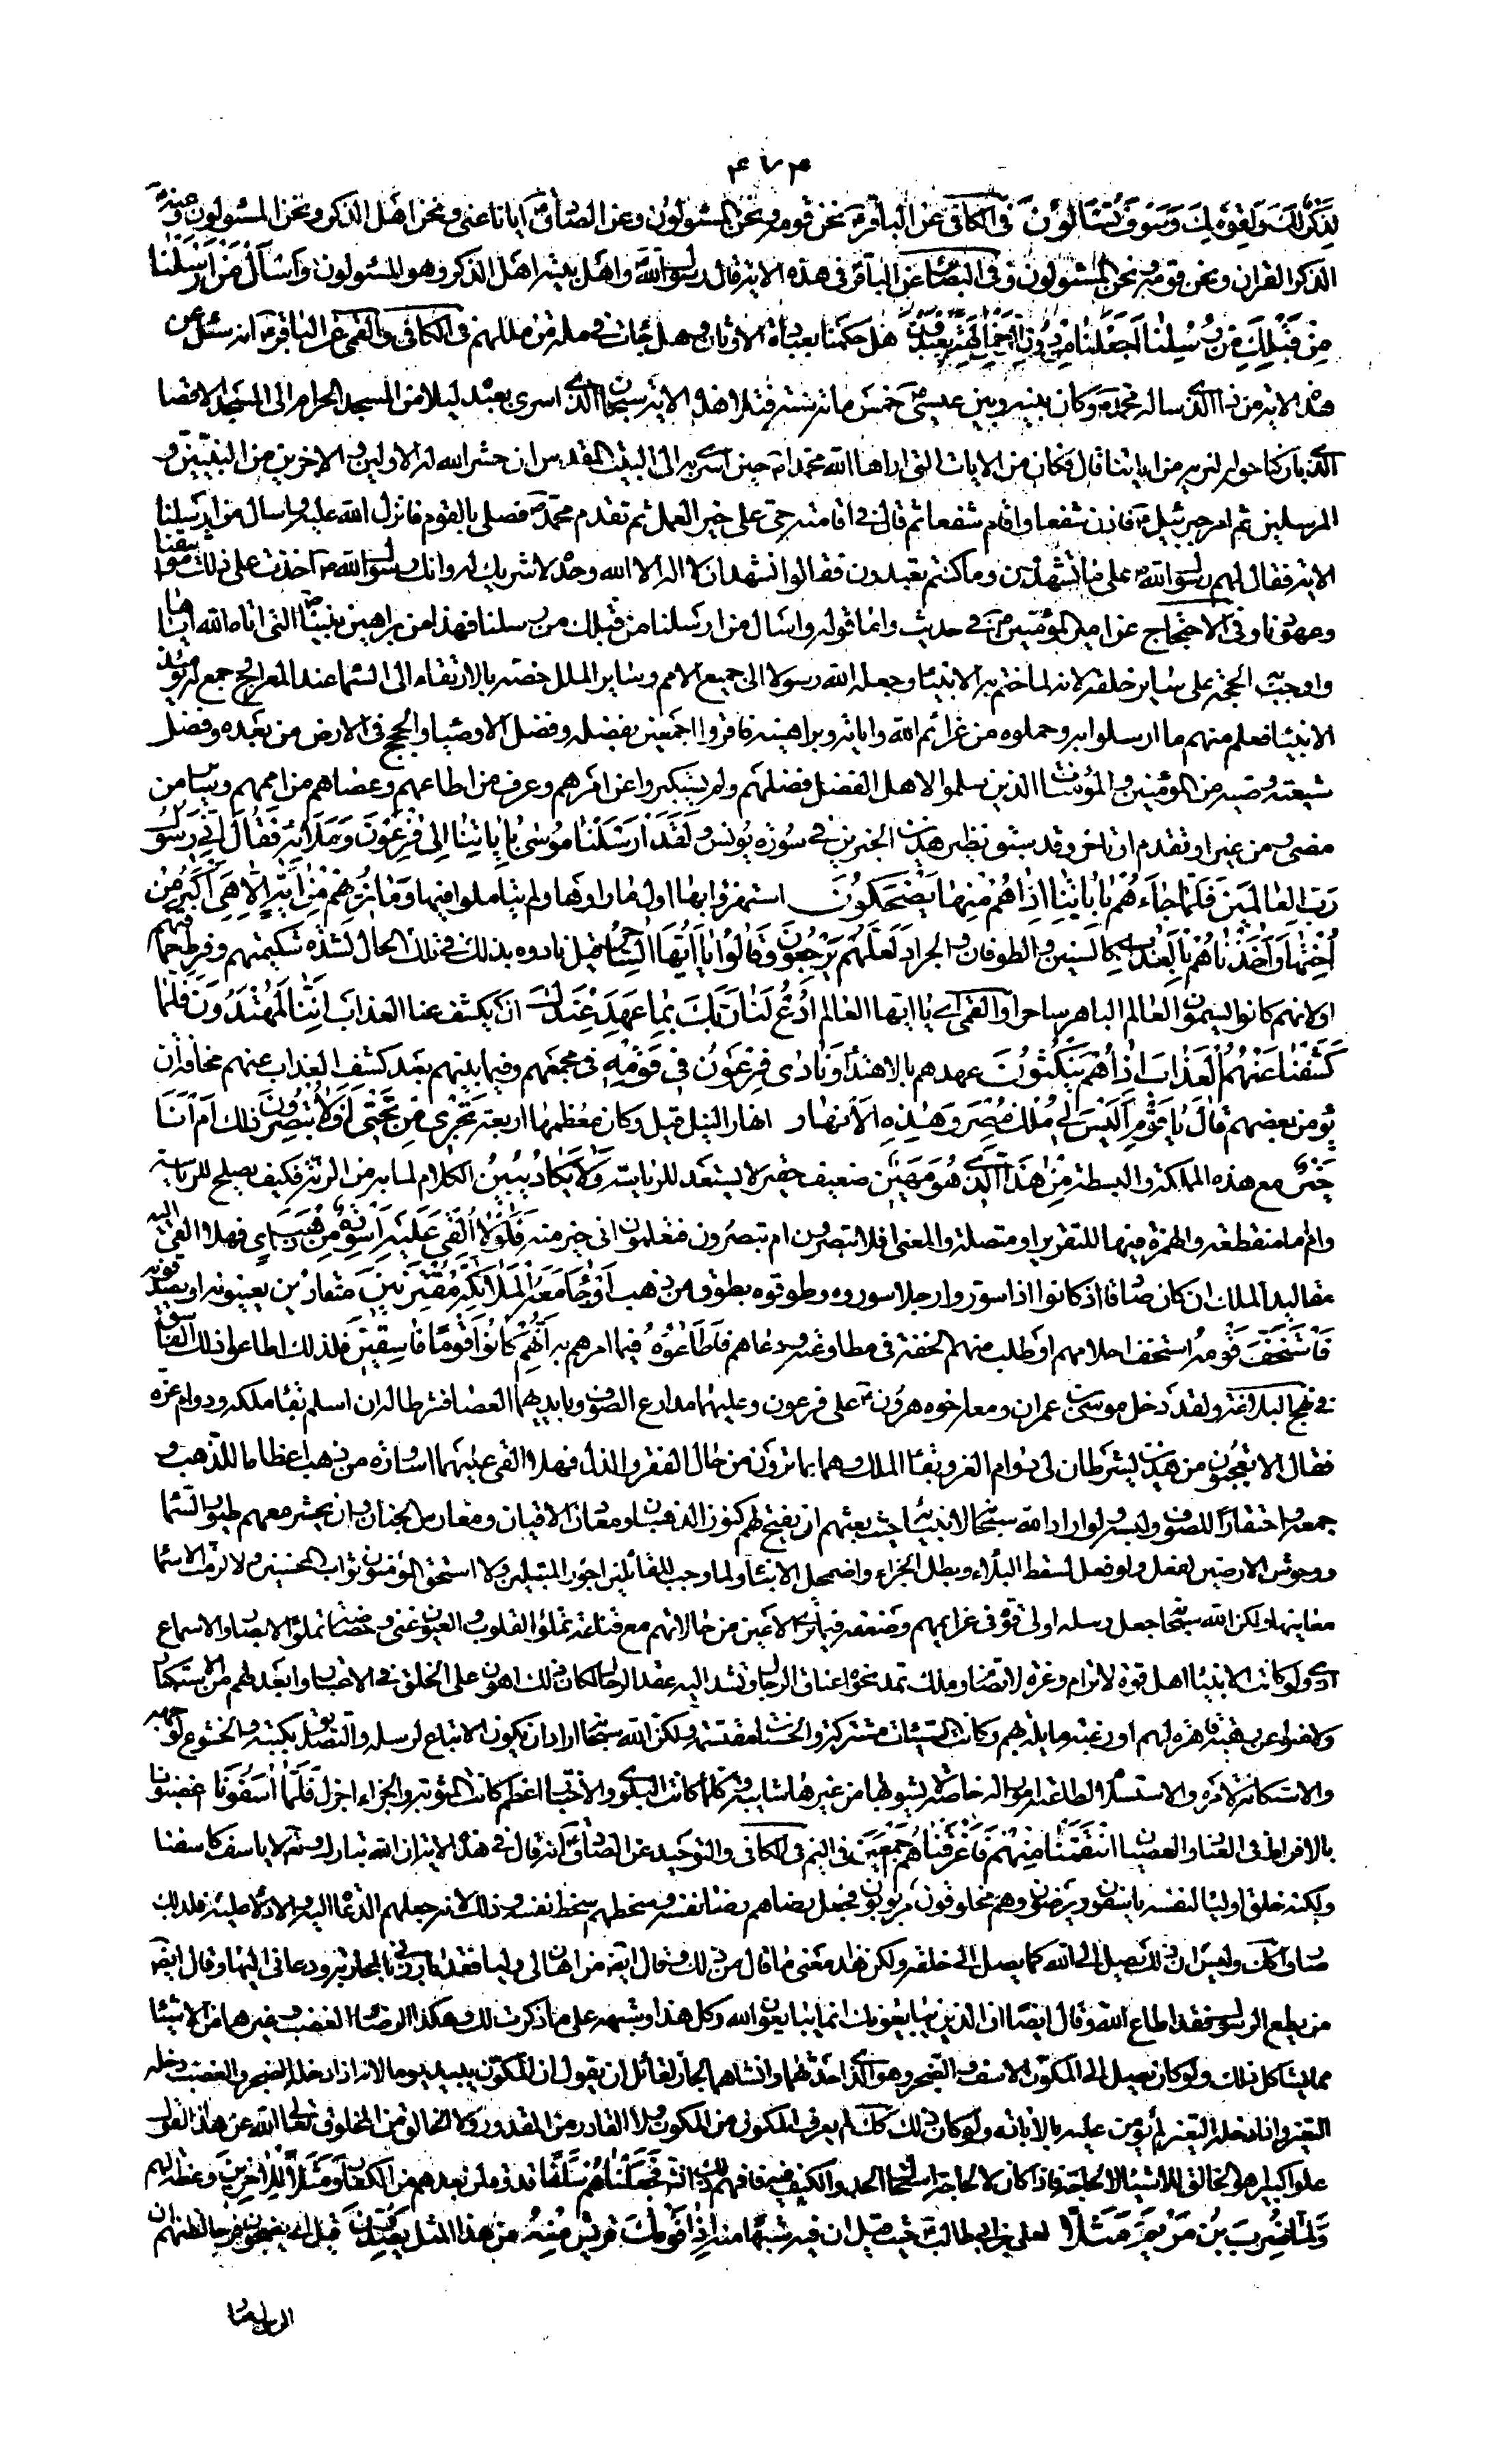 ٤٧٣
لِذِكْرٌ لَكَ وَلِقَوْمِكَ وَسَوْفَ تُسْئَالُونَ في الكافي عن الباقر نحن قومه ونحن المسئولون وعن الصادق ايانا عنى ونحن اهل الذكر ونحن المسئولون وعنه
الذكر القران ونحن قومه ونحن المسئولون وفي البصائر عن الباقر في هذه الاية قال رسول الله واهل بيته اهل الذكر وهو المسئولون وَاسْاَلْ مَنْ اَرْسَلْنَا
مِنْ قَبْلِكَ مِنْ رُسُلِنَا اَجَعَلْنَا مِنْ دُونِ الرَّحْمنِ الِهَةً يُعْبَدُونَ هل حكمنا بعبادة الاوثان وهل جائت في ملة من مللهم في الكافي والقمي عن الباقر انه سئل عن
هذه الاية من ذا الذي ساله محمد وكان بينه وبين عيسى خمس مائة سنة فتلا هذه الاية سبحان الذي اسرى بعبده ليلا من المسجد الحرام الى المسجد الاقصا
الذي باركنا حوله لنريه من اياتنا قال فكان من الايات التي اراها الله محمدا حين اسرى به الى البيت المقدس ان حشر الله له الاولين والاخرين من النبيين و
المرسلين ثم امر جبرئيل فاذن شفعا واقام شفعا ثم قال في اقامته حي على خير العمل ثم تقدم محمد فصلى بالقوم فانزل الله عليه واسال من ارسلنا
الاية فقال لهم رسول الله على ما تشهدون وما كنتم تعبدون فقالوا نشهد ان لا اله الا الله وحده لا شريك له وانك رسول الله اخذت على ذلك مواثيقنا
وعهودنا وفي الاحتجاج عن امير المؤمنين في حديث واما قوله واسال من ارسلنا من قبلك من رسلنا فهذا من براهين نبينا التي اتاه الله اياها
واوجب به الحجة على سائر خلقه لانه لما ختم به الانبياء وجعله الله رسولا الى جميع الامم وساير الملل خصه بالارتقاء الى السماء عند المعراج وجمع له يومئذ
الانبياء فعلم منهم ما ارسلوا به وحملوه من عزائم الله واياته وبراهينه فاقروا اجمعين بفضله وفضل الاوصياء والحجج في الارض من بعده وفضل
شيعة وصيه من المؤمنين والمؤمنات الذين سلموا لاهل الفضل فضلهم ولم يستكبروا عن امرهم وعرف من اطاعهم وعصاهم من اممهم وساير من
مضى ومن غبر او تقدم او تاخر وقد سبق نظير هذين الخبرين في سورة يونس وَلَقَدْ اَرْسَلْنَا مُوسى بِايَاتِنَا اِلى فِرْعَوْنَ وَمَلَائِهِ فَقَالَ اِنِّي رَسُولُ
رَبِّ الْعَالَمِينَ فَلَمَّا جَاءَهُمْ بِايَاتِنَا اِذَا هُمْ مِنْهَا يَضْحَكُونَ استهزؤا بها اول ما راوها ولم يتاملوا فيها وَمَا نُرِيهِمْ مِنْ ايَةٍ اِلَّا هِيَ اَكْبَرُ مِنْ
اُخْتِهَا وَاَخَذْنَاهُمْ بِالْعَذَابِ كالسنين والطوفان والجراد لَعَلَّهُمْ يَرْجِعُونَ وَقَالُوا يَا اَيُّهَا السَّاحِرُ قيل نادوه بذلك في تلك الحال لشدة شكيمتهم وفرط حماقتهم
او لانهم كانوا يسمون العالم الباهر ساحرا والقمي اي يا ايها العالم اُدْعُ لَنَا رَبَّكَ بِمَا عَهِدَ عِنْدَكَ ان يكشف عنا العذاب اِنَّنَا لَمُهْتَدُونَ فَلَمَّا
كَشَفْنَا عَنْهُمُ الْعَذَابَ اِذَا هُمْ يَنْكُثُونَ عهدهم بالاهتداء وَنَادى فِرْعَوْنُ في قَوْمِهِ في مجمعهم وفيما بينهم بعد كشف العذاب عنهم مخافة ان
يؤمن بعضهم قَالَ يَا قَوْمِ اَلَيْسَ لي مُلْكُ مِصْرَ وَهذِهِ الْاَنْهَارُ انهار النيل قيل وكان معظمها اربعة تَجْرِي مِنْ تَحْتِي اَفَلَا تُبْصِرُونَ ذلك اَمْ اَنَا
خَيْرٌ مع هذه المملكة والبسطة مِنْ هذَا الَّذِي هُوَ مَهِينٌ ضعيف حقير لا يستعد للرياسة وَلَا يَكَادُ يُبِينُ الكلام لما به من الرتة فكيف يصلح للرسالة
وام اما منقطعة والهمزة فيها للتقرير او متصلة والمعنى افلا تبصرون ام تبصرون فتعلمون اني خير منه فَلَوْلَا اُلْقِيَ عَلَيْهِ اَسْوِرَةٌ مِنْ ذَهَبٍ اي فهلا القي اليه
مقاليد الملك ان كان صادقا اذ كانوا اذا سوروا رجلا سوروه وطوقوه بطوق من ذهب اَوْ جَاءَ مَعَهُ الْمَلَائِكَةُ مُقْتَرِنِينَ متقارنين يعينونه او يصدقونه
فَاسْتَخَفَّ قَوْمَهُ استخف احلامهم او طلب منهم الخفة في مطاوعته ودعاهم فَاَطَاعُوهُ فيما امرهم به اِنَّهُمْ كَانُوا قَوْمًا فَاسِقِينَ فلذلك اطاعوا ذلك الفاسق
في نهج البلاغة ولقد دخل موسى بن عمران ومعه اخوه هرون على فرعون وعليهما مدارع الصوف وبايديهما العصا فشرطا له ان اسلم بقاء ملكه ودوام عزه
فقال الا تعجبون من هذين يشرطان لي دوام العز وبقاء الملك وهما بما ترون من حال الفقر والذل فهلا القي عليهما اساورة من ذهب اعظاما للذهب و
جمعه واحتقارا للصوف ولبسه ولو اراد الله سبحانه لانبيائه حيث بعثهم ان يفتح لهم كنوز الذهبان ومعادن العقيان ومغارس الجنان وان يحشر معهم طيور السماء
ووحوش الارضين لفعل ولو فعل لسقط البلاء وبطل الجزاء واضمحل الانباء ولما وجب للقائلين اجور المبتلين ولا استحق المؤمنون ثواب المحسنين ولا لزمت الاسماء
معانيها ولكن الله سبحانه جعل رسله اولى قوة في عزايمهم وضعفة فيما ترى الاعين من حالاتهم مع قناعة تملؤ القلوب والعيون غنى وخصاصة تملؤ الابصار والاسماع
اذى ولو كانت الانبياء اهل قوة لا ترام وعزة لا تضام وملك تمد نحوه اعناق الرجال وتشد اليه عقد الرحال لكان ذلك اهون على الخلق في الاعتبار وابعد لهم من الاستكبار
ولامنوا عن رهبة قاهرة لهم او رغبة مايلة بهم وكانت السيئات مشتركة والحسنات مقتسمة ولكن الله سبحانه اراد ان يكون الاتباع لرسله والتصديق بكتبه والخشوع لوجهه
والاستكانة لامره والاستسلام لطاعته امورا له خاصة لا يشوبها من غيرها شايبة وكلما كانت البلوى والاختبار اعظم كانت المثوبة والجزاء اجزل فَلَمَّا اسَفُونَا اغضبونا
بالافراط في العناد والعصيان انْتَقَمْنَا مِنْهُمْ فَاَغْرَقْنَاهُمْ اَجْمَعِينَ في اليم في الكافي والتوحيد عن الصادق انه قال في هذه الاية ان الله تبارك وتعالى لا ياسف كاسفنا
ولكنه خلق اولياء لنفسه ياسفون ويرضون وهم مخلوقون مربوبون فجعل رضاهم رضا نفسه وسخطهم سخط نفسه وذلك لانه جعلهم الدعاة اليه والادلاء عليه فلذلك
صاروا كذلك وليس ان ذلك يصل الى الله كما يصل الى خلقه ولكن هذا معنى ما قال من ذلك وقال ايضا من اهان لي وليا فقد بارزني بالمحاربة ودعاني اليها وقال ايضا
من يطع الرسول فقد اطاع الله وقال ايضا ان الذين يبايعونك انما يبايعون الله وكل هذا وشبهه على ما ذكرت لك وهكذا الرضاء والغضب وغيرهما من الاشياء
مما يشاكل ذلك ولو كان يصل الى المكون الاسف والضجر وهو الذي احدثهما وانشاهما لجاز لقائل ان يقول ان المكون يبيد يوما لانه اذا دخله الضجر والغضب دخله
التغير واذا دخله التغير لم يؤمن عليه بالابادة ولو كان ذلك كذلك لم يعرف المكون من المكون ولا القادر من المقدور ولا الخالق من المخلوق تعالى الله عن هذا القول
علوا كبيرا هو الخالق للاشياء لا لحاجة فاذا كان لا لحاجة استحال الحد والكيف فيه فافهم ذلك انشاءالله فَجَعَلْنَاهُمْ سَلَفًا قدوة لمن بعدهم من الكفار وَمَثَلًا لِلْاخِرِينَ وعظة لهم
وَلَمَّا ضُرِبَ ابْنُ مَرْيَمَ مَثَلًا لعلي بن ابي طالب حيث قيل ان فيه شبها منه اِذَا قَوْمُكَ قريش مِنْهُ من هذا المثل يَصِدُّونَ قيل اي يضجون فرحا لظنهم ان